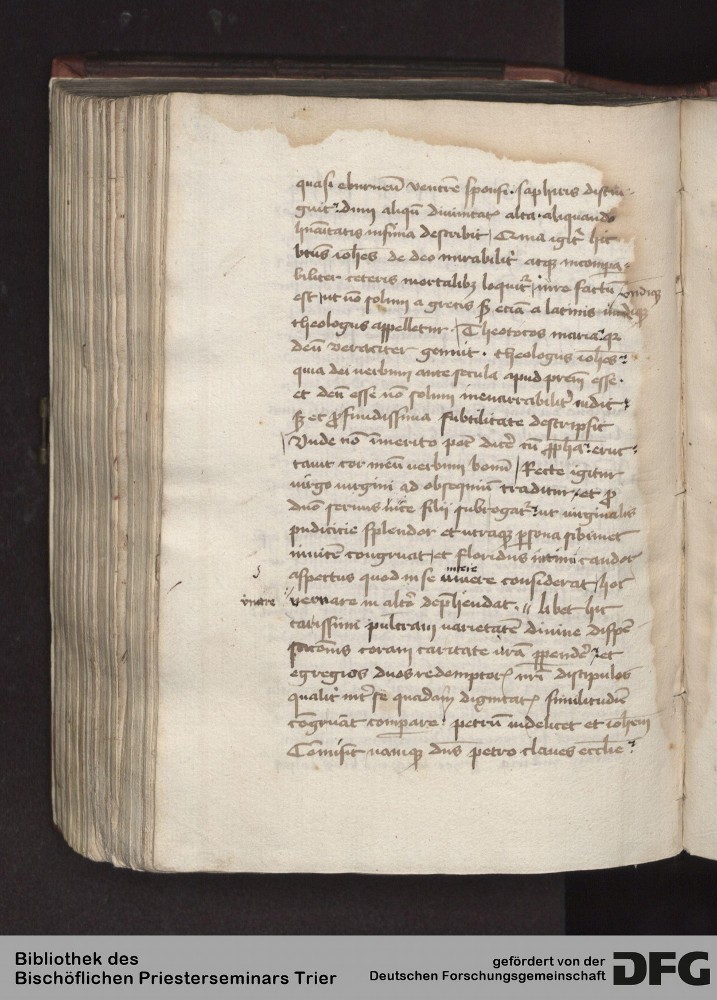 quasi eburneū ventrē sponsi · saphiris distin-
guit dum aliqn̄ divinitatꝭ alta · aliquando
hūanitatis infima describit / Quia igit᷑ hic
btūs ioh̄es de deo mirabilit᷑ atqꝫ incompa-
biliter ceteris mortalibꝫ loquit᷑ / iure factū
est / ut nō solum a grecis sꝫ eciā a latinis undiqꝫ
theologus appelletur / Theotocos maria · qꝛ
deū veraciter genuit · theologus ioh̄es
quia dei verbum ante secula apud pr̄em esse ·
et deū esse nō solum inenarrabilit᷑ vidit
sꝫ et ꝓfundissima subtilitate descripsit
/ Unde nō īmerito pōt dicē cū ꝓpha · eruc-
tauit cor meū verbum bonū / Recte igitur
virgo virgini ad obsequiū traditur / et ꝓ
dnō seruus vice filij subrogat᷑ · ut virginalis
pudicicie splendor et utraqꝫ ꝑsona sibimet
inuicē congruat / et floridus intimi candor
aspectus quod in se considerat / hoc
vernare in altō dep̄hendat · // libet hic
carissimi pulcram varietatē divine dispē
sacōnis coram caritate vrā ꝑpendē / et
egregios duos redemptorꝭ nrī discipulos
qualit᷑ int᷑ se quadam dignitatꝭ similitudīe
cōgruāt compare · petrū videlicet et ioh̄em
Cōmisit namqꝫ dn̄s petro claues ecclīe
Bibliothek des
Bischöflichen Priesterseminars Trier
gefördert von der
Deutschen Forschungsgemeinschaft
DFG